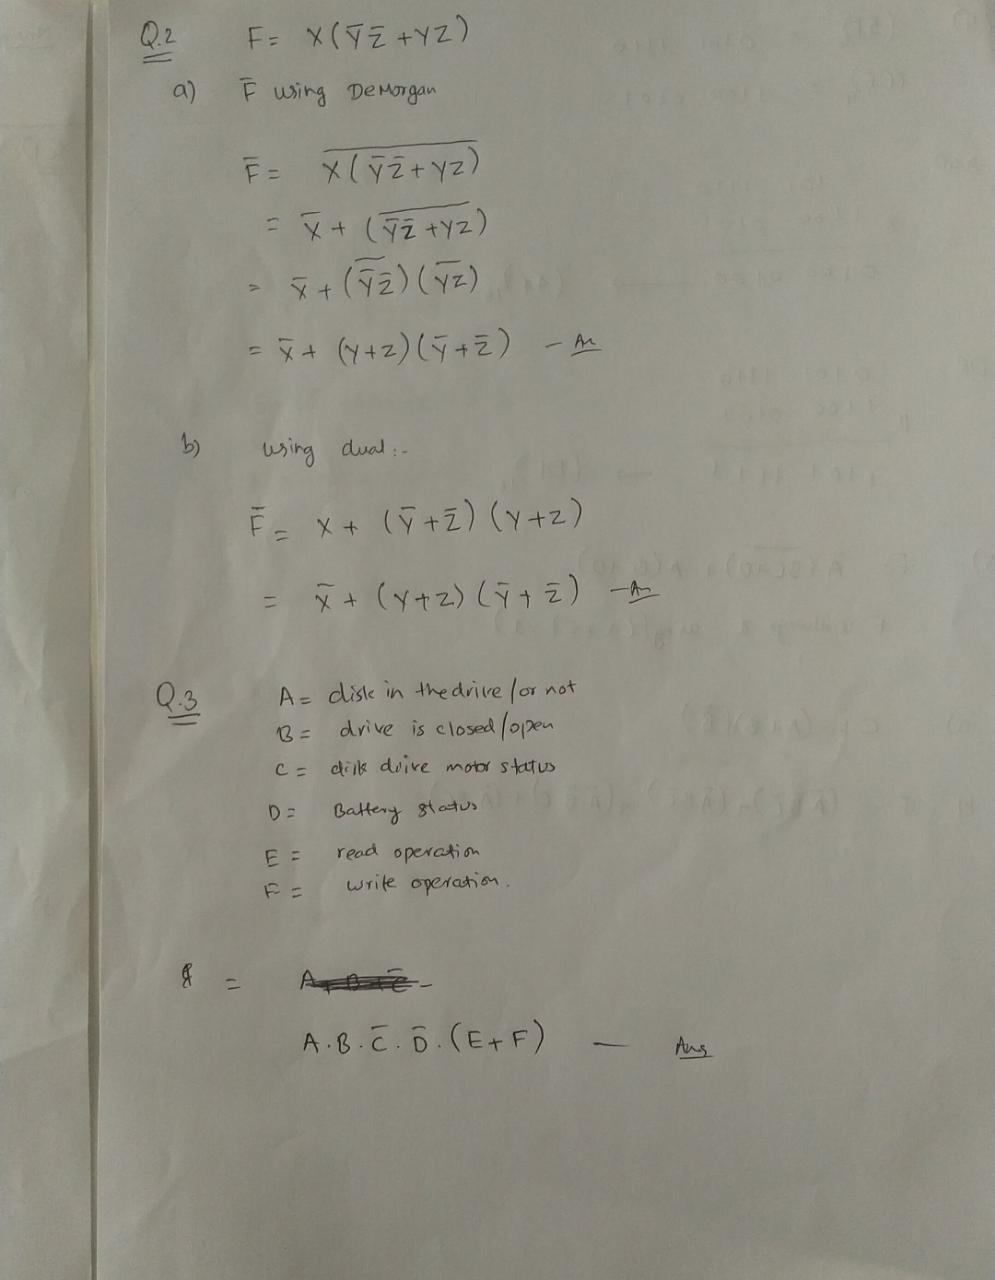 Q.2 F = X(Y̅Z̅ + YZ)
a) F̅ using DeMorgan
F̅ = \overline{X(Y̅Z̅ + YZ)}
= X̅ + (\overline{Y̅Z̅ + YZ})
= X̅ + (\overline{Y̅Z̅})(\overline{YZ})
= X̅ + (Y+Z)(Y̅+Z̅) - An
b) using dual :-
F̅ = X + (Y̅+Z̅)(Y+Z)
= X̅ + (Y+Z)(Y̅+Z̅) - An
Q.3 A = disk in the drive / or not
B = drive is closed / open
C = disk drive motor status
D = Battery status
E = read operation
F = write operation.
=
A.B.C̅.D̅.(E+F) — Ans